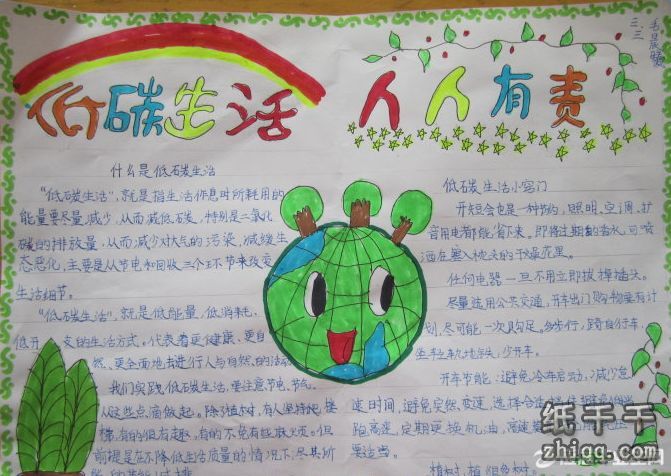 三、三
低碳生活
人人有责
什么是低碳生活
"低碳生活",就是指生活作息时所耗用的
能量要尽量减少,从而减低碳,特别是二氧化
碳的排放量,从而减少对大气的污染,减缓生
态恶化,主要是从节电和回收三个环节来改变
生活细节。
"低碳生活",就是低能量、低消耗、
低开 支的生活方式。代表着更健康、更自
然、更全面地去进行人与自然的活动
我们实践低碳生活,要注意节电、节气
从这些点滴做起。除了植树,有人坚持爬楼
梯,有的很有趣,有的不免有些麻烦。但
前提是在不降低生活质量的情况下,尽其所
低碳生活小窍门
开短会也是一种节约,照明、空调、扩
音用电都能省下来,即将过期的香水,可喷
洒在塞入枕头的干燥花里。
任何电器一旦不用立即拔掉插头。
尽量选用公共交通,开车出门购物要有计
划,尽可能一次购足。多步行,骑自行车、
坐轻轨地铁,少开车。
开车节能:避免冷车启动,减少怠
速时间,避免突然变速,选择合适
跑高速,定期更换机油,高速
要适当。
植树:植
纸千千
zhiqq.com